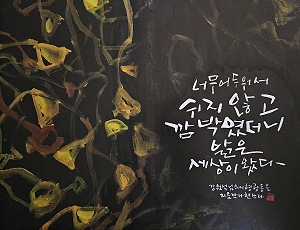 너무 어두워서
쉬지 않고
깜박였더니
밝은
세상이 왔다